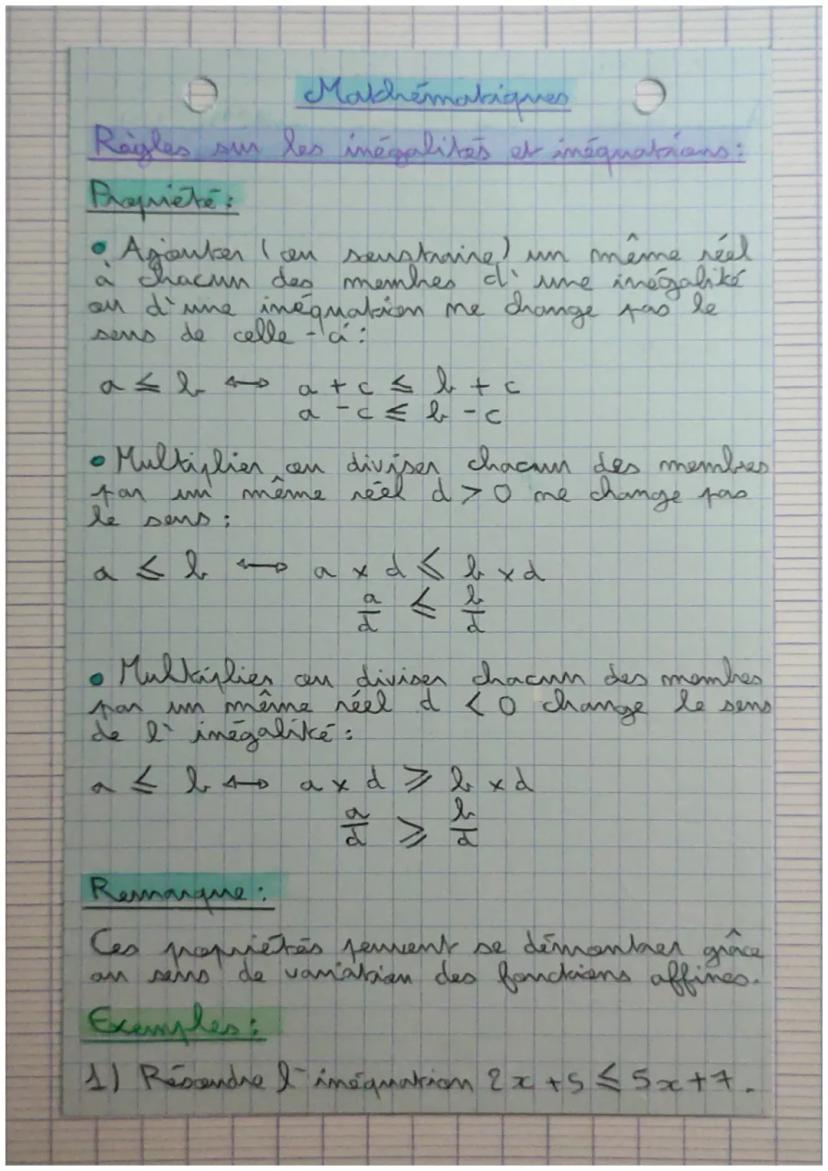 Mathématiques
Règles sur les inégalités et inéquations :
Propriété :
• Ajouter (ou soustraire) un même réel
à chacun des membres d'une inégalité
ou d'une inéquation ne change pas le
sens de celle-ci :
a ≤ b ⟺ a + c ≤ b + c
a - c ≤ b - c
• Multiplier ou diviser chacun des membres
par un même réel d > 0 ne change pas
le sens :
a ≤ b ⟺ a x d ≤ b x d
a/d ≤ b/d
• Multiplier ou diviser chacun des membres
par un même réel d < 0 change le sens
de l'inégalité :
a ≤ b ⟺ a x d ≥ b x d
a/d ≥ b/d
Remarque :
Ces propriétés peuvent se démontrer grâce
au sens de variation des fonctions affines.
Exemples :
1) Résoudre l'inéquation 2x + 5 ≤ 5x + 7.